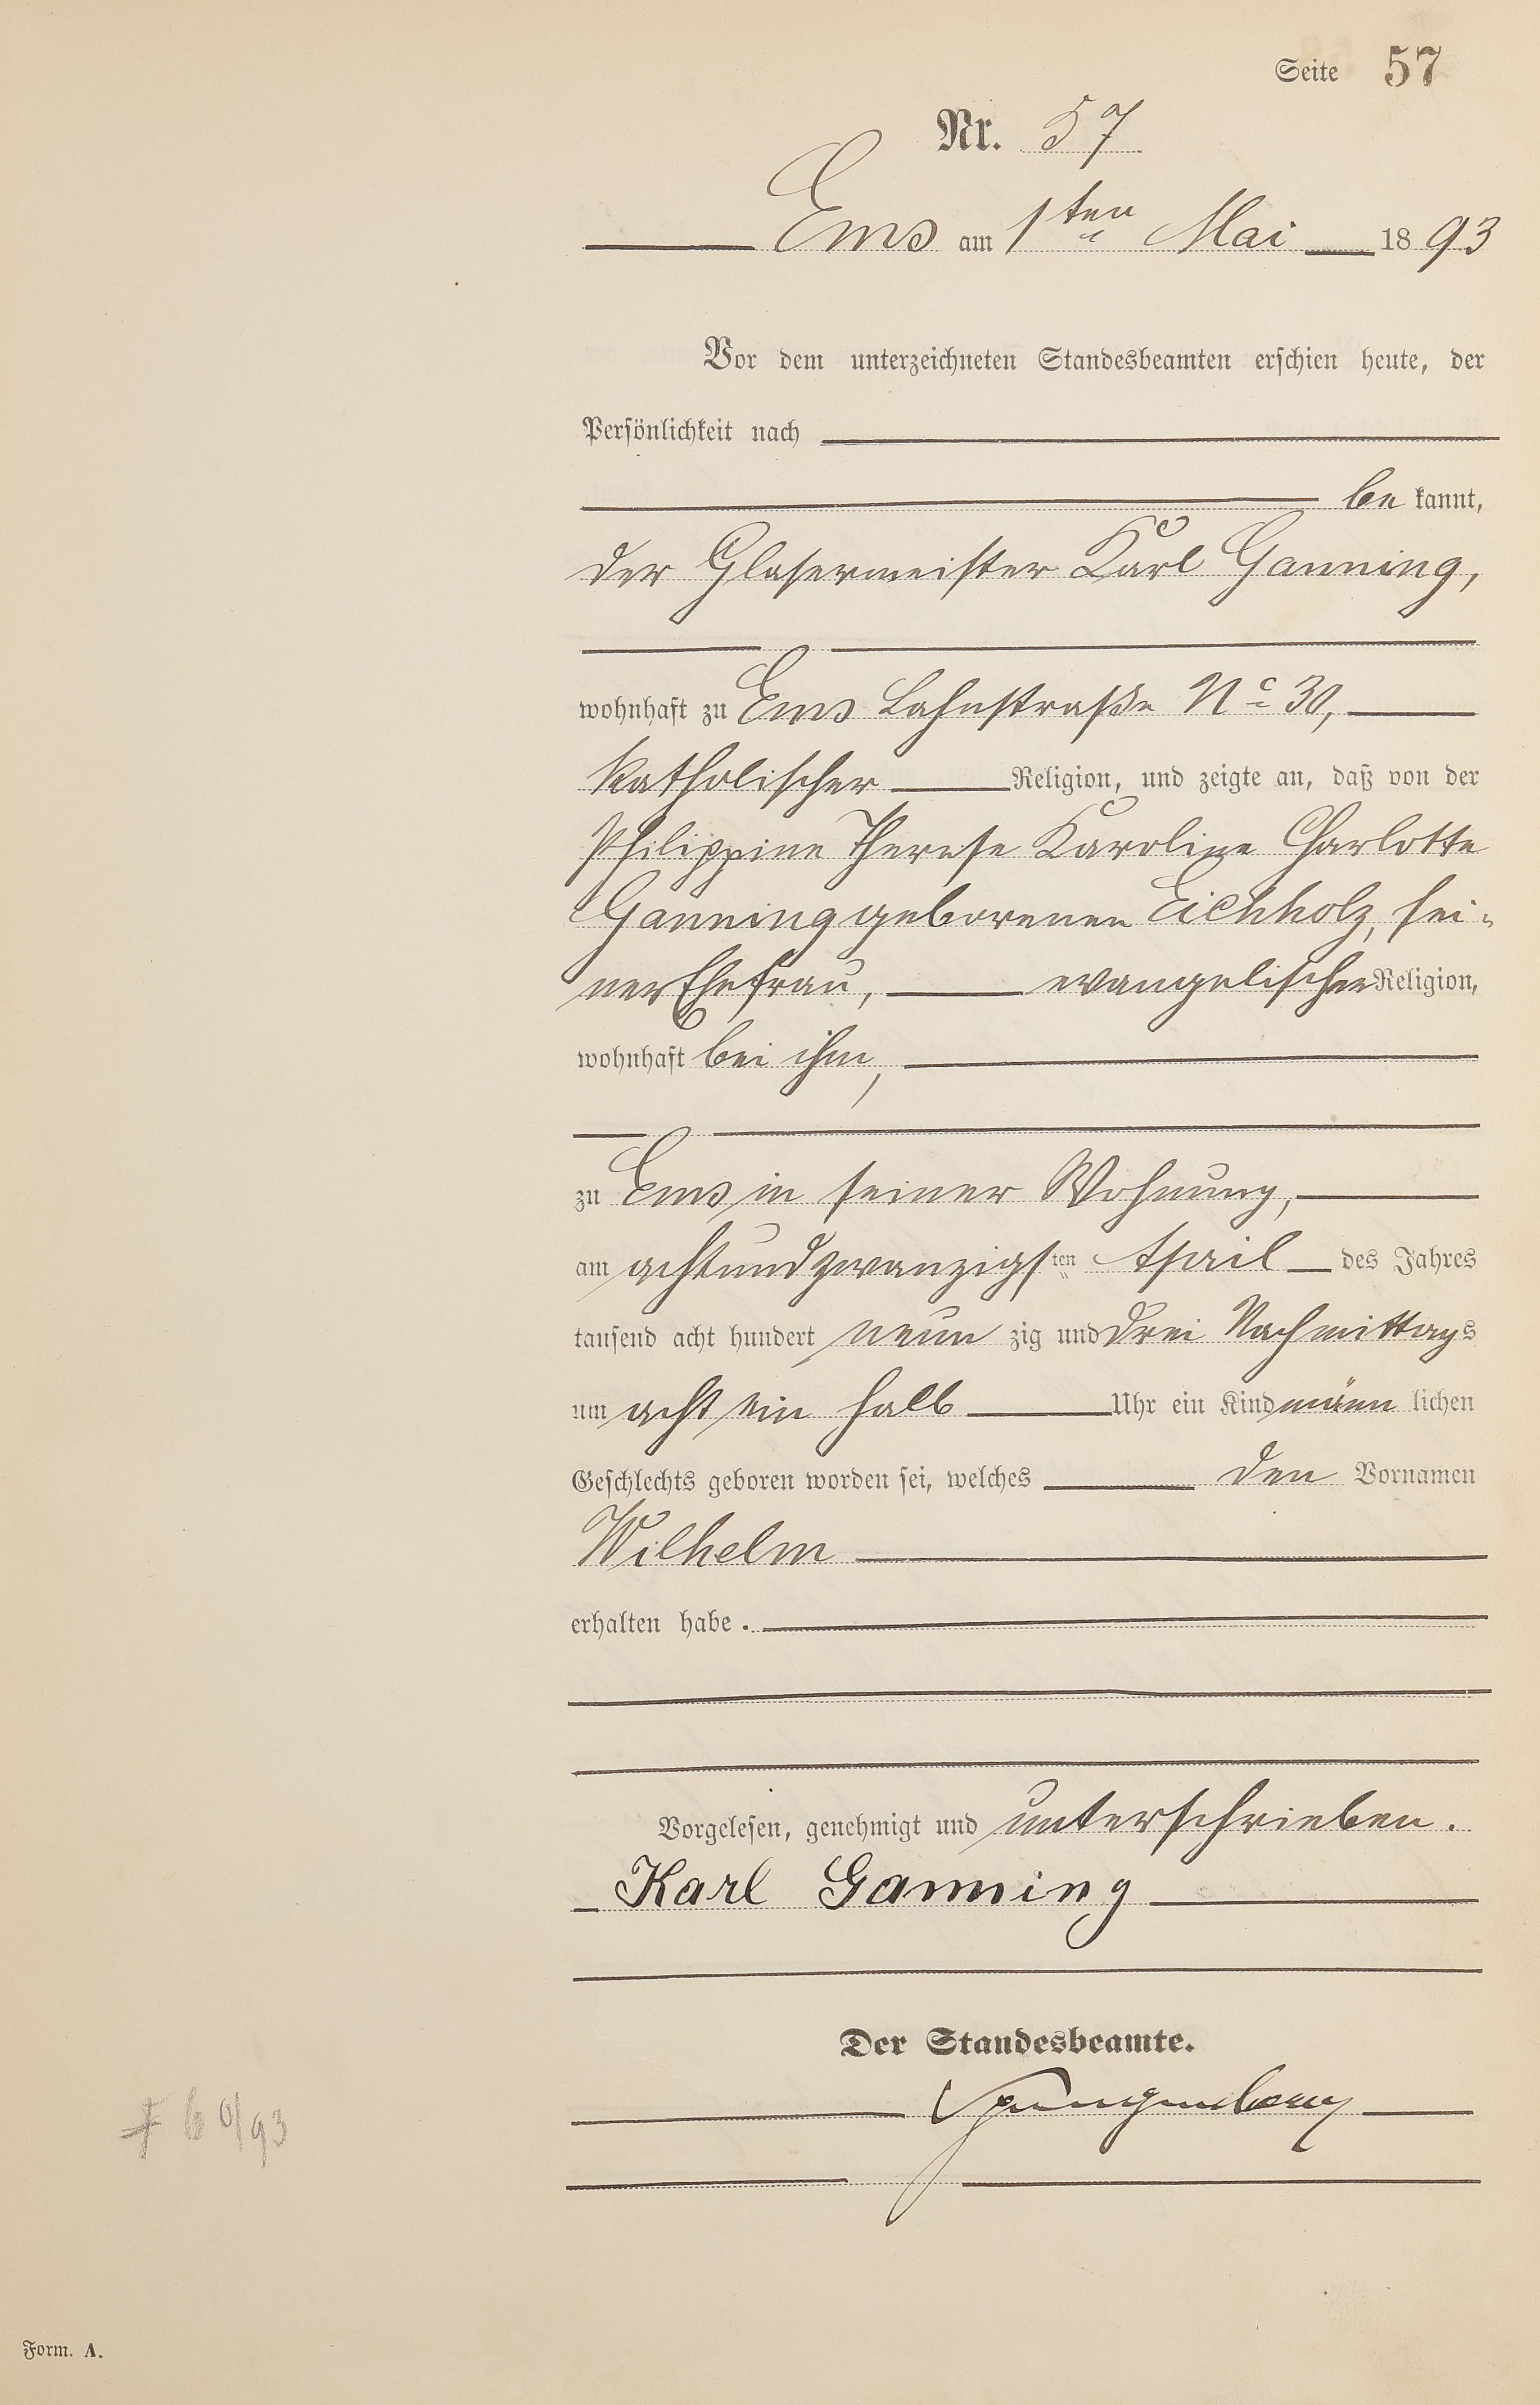 Seite 57
Nr. 57
Ems am 1ten Mai 1893
Vor dem unterzeichneten Standesbeamten erschien heute, der
Persönlichkeit nach
bekannt,
der Glasermeister Karl Ganning,
wohnhaft zu Ems Lahnstraße No 30,
katholischer Religion, und zeigte an, daß von der
Philippine Therese Karoline Charlotte
Ganning geborenen Eichholz, sei-
ner Ehefrau, evangelischer Religion,
wohnhaft bei ihm,
zu Ems in seiner Wohnung,
am achtundzwanzigsten April des Jahres
tausend acht hundert neunzig und drei Nachmittags
um acht ein halb Uhr ein Kind männlichen
Geschlechts geboren worden sei, welches den Vornamen
Wilhelm
erhalten habe.
Vorgelesen, genehmigt und unterschrieben.
Karl Ganning
Der Standesbeamte.
Spangenberg
Form. A.